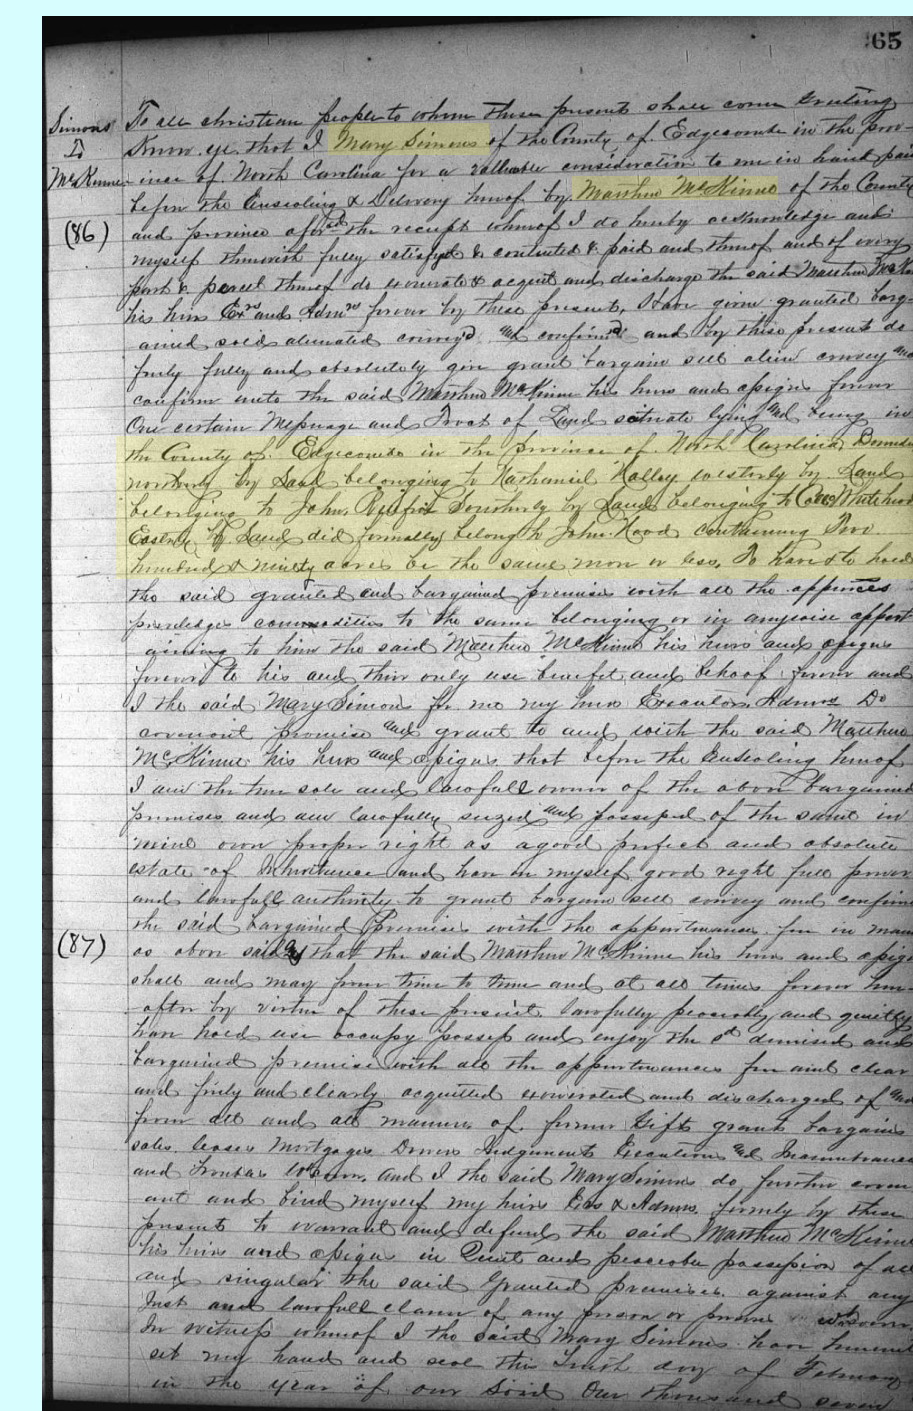 65
Simons
To
McKinne
(86)
To all christian people to whom these present shall come Greeting
Know ye that I Mary Simons of the County of Edgecombe in the prov-
ince of North Carolina for a valluable consideration to me in hand paid
before the Ensealing & Delivery hereof by Matthew McKinne of the County
and province afor sd the receipt whereof I do hereby acknowledge and
myself therewith fully satisfyd & contented & paid and thereof and of every
part & parcel thereof do exonerate & acquit and discharge the said Matthew McKin
his heirs Exrs and Admrs forever by these present, Have given granted barg-
ained sold alienated convey'd and confirm'd and by these present do
freely fully and absolutely give grant bargain sell alien convey and
confirm unto the said Matthew McKinne his heirs and assigns forever
One certain Messuage and Tract of Land scituate lying and being in
the County of Edgecombe in the province of North Carolina,
northerly by Land belonging to Nathaniel Holley westerly by Land
belonging to John Southerly by Land belonging to
by Land did formally belong to John Hood containing Two
hundred & ninety acres be the same more or less, To have & to hold
the said granted and bargained premises with all the
commodities to the same belonging or in anywise appert
aining to him the said Matthew McKinne his heirs and assigns
forever to his and their only use benefit and behoof forever and
I the said Mary Simons for me my heirs Executors, Admrs Do
covenant promise and grant to and with the said Matthew
McKinne his heirs and assigns, that before the Ensealing hereof
I am the true sole and lawfull owner of the above bargained
premises and am lawfully seized and possessed of the same in
mine own proper right as a good perfect and absolute
estate of Inheritance and have in myself good right full power
and lawfull authority to grant bargain sell convey and confirm
the said bargained Premises with the appurtenances for in man
(87)
as above said that the said Matthew McKinne his heirs and assigns
shall and may from time to time and at all times forever here-
after by virtue of these present lawfully peaceably and quietly
have hold use occupy possess and enjoy the sd demised and
bargained premises with all the appurtenances free and clear
and freely and clearly acquitted exonerated and discharged of and
from all and all manner of former Gifts grants bargains
sales leases Mortgages Dowers Judgments Executions and Incumbrances
and Troubles and I the said Mary Simons do further coven
ant and bind myself my heirs Exrs & Admrs. firmly by these
present to warrant and defend the said Matthew McKinne
his heirs and assigns in Quiet and peaceable possession of all
and singular the said Granted premises against any
Just and lawfull claim of any person or persons
In witness whereof I the said Mary Simons have hereunto
set my hand and seal this day of February
in the year of our one thousand seven